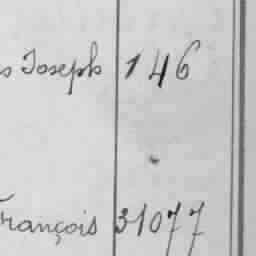 s Joseph 146
François 31077